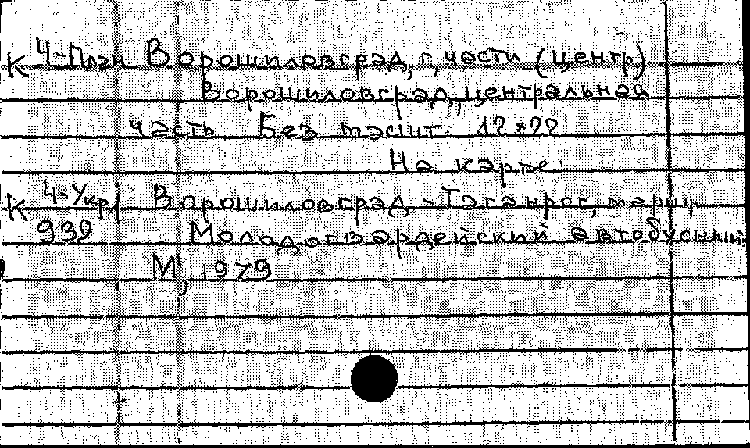 К 4-План Ворошиловград, г, части (центр)
Ворошиловград, центральная
часть. Без масшт. 12*22
На карте:
К 4-Укр Ворошиловград - Таганрог, марш
939 Молодогвардейский автобусный
М, 1979